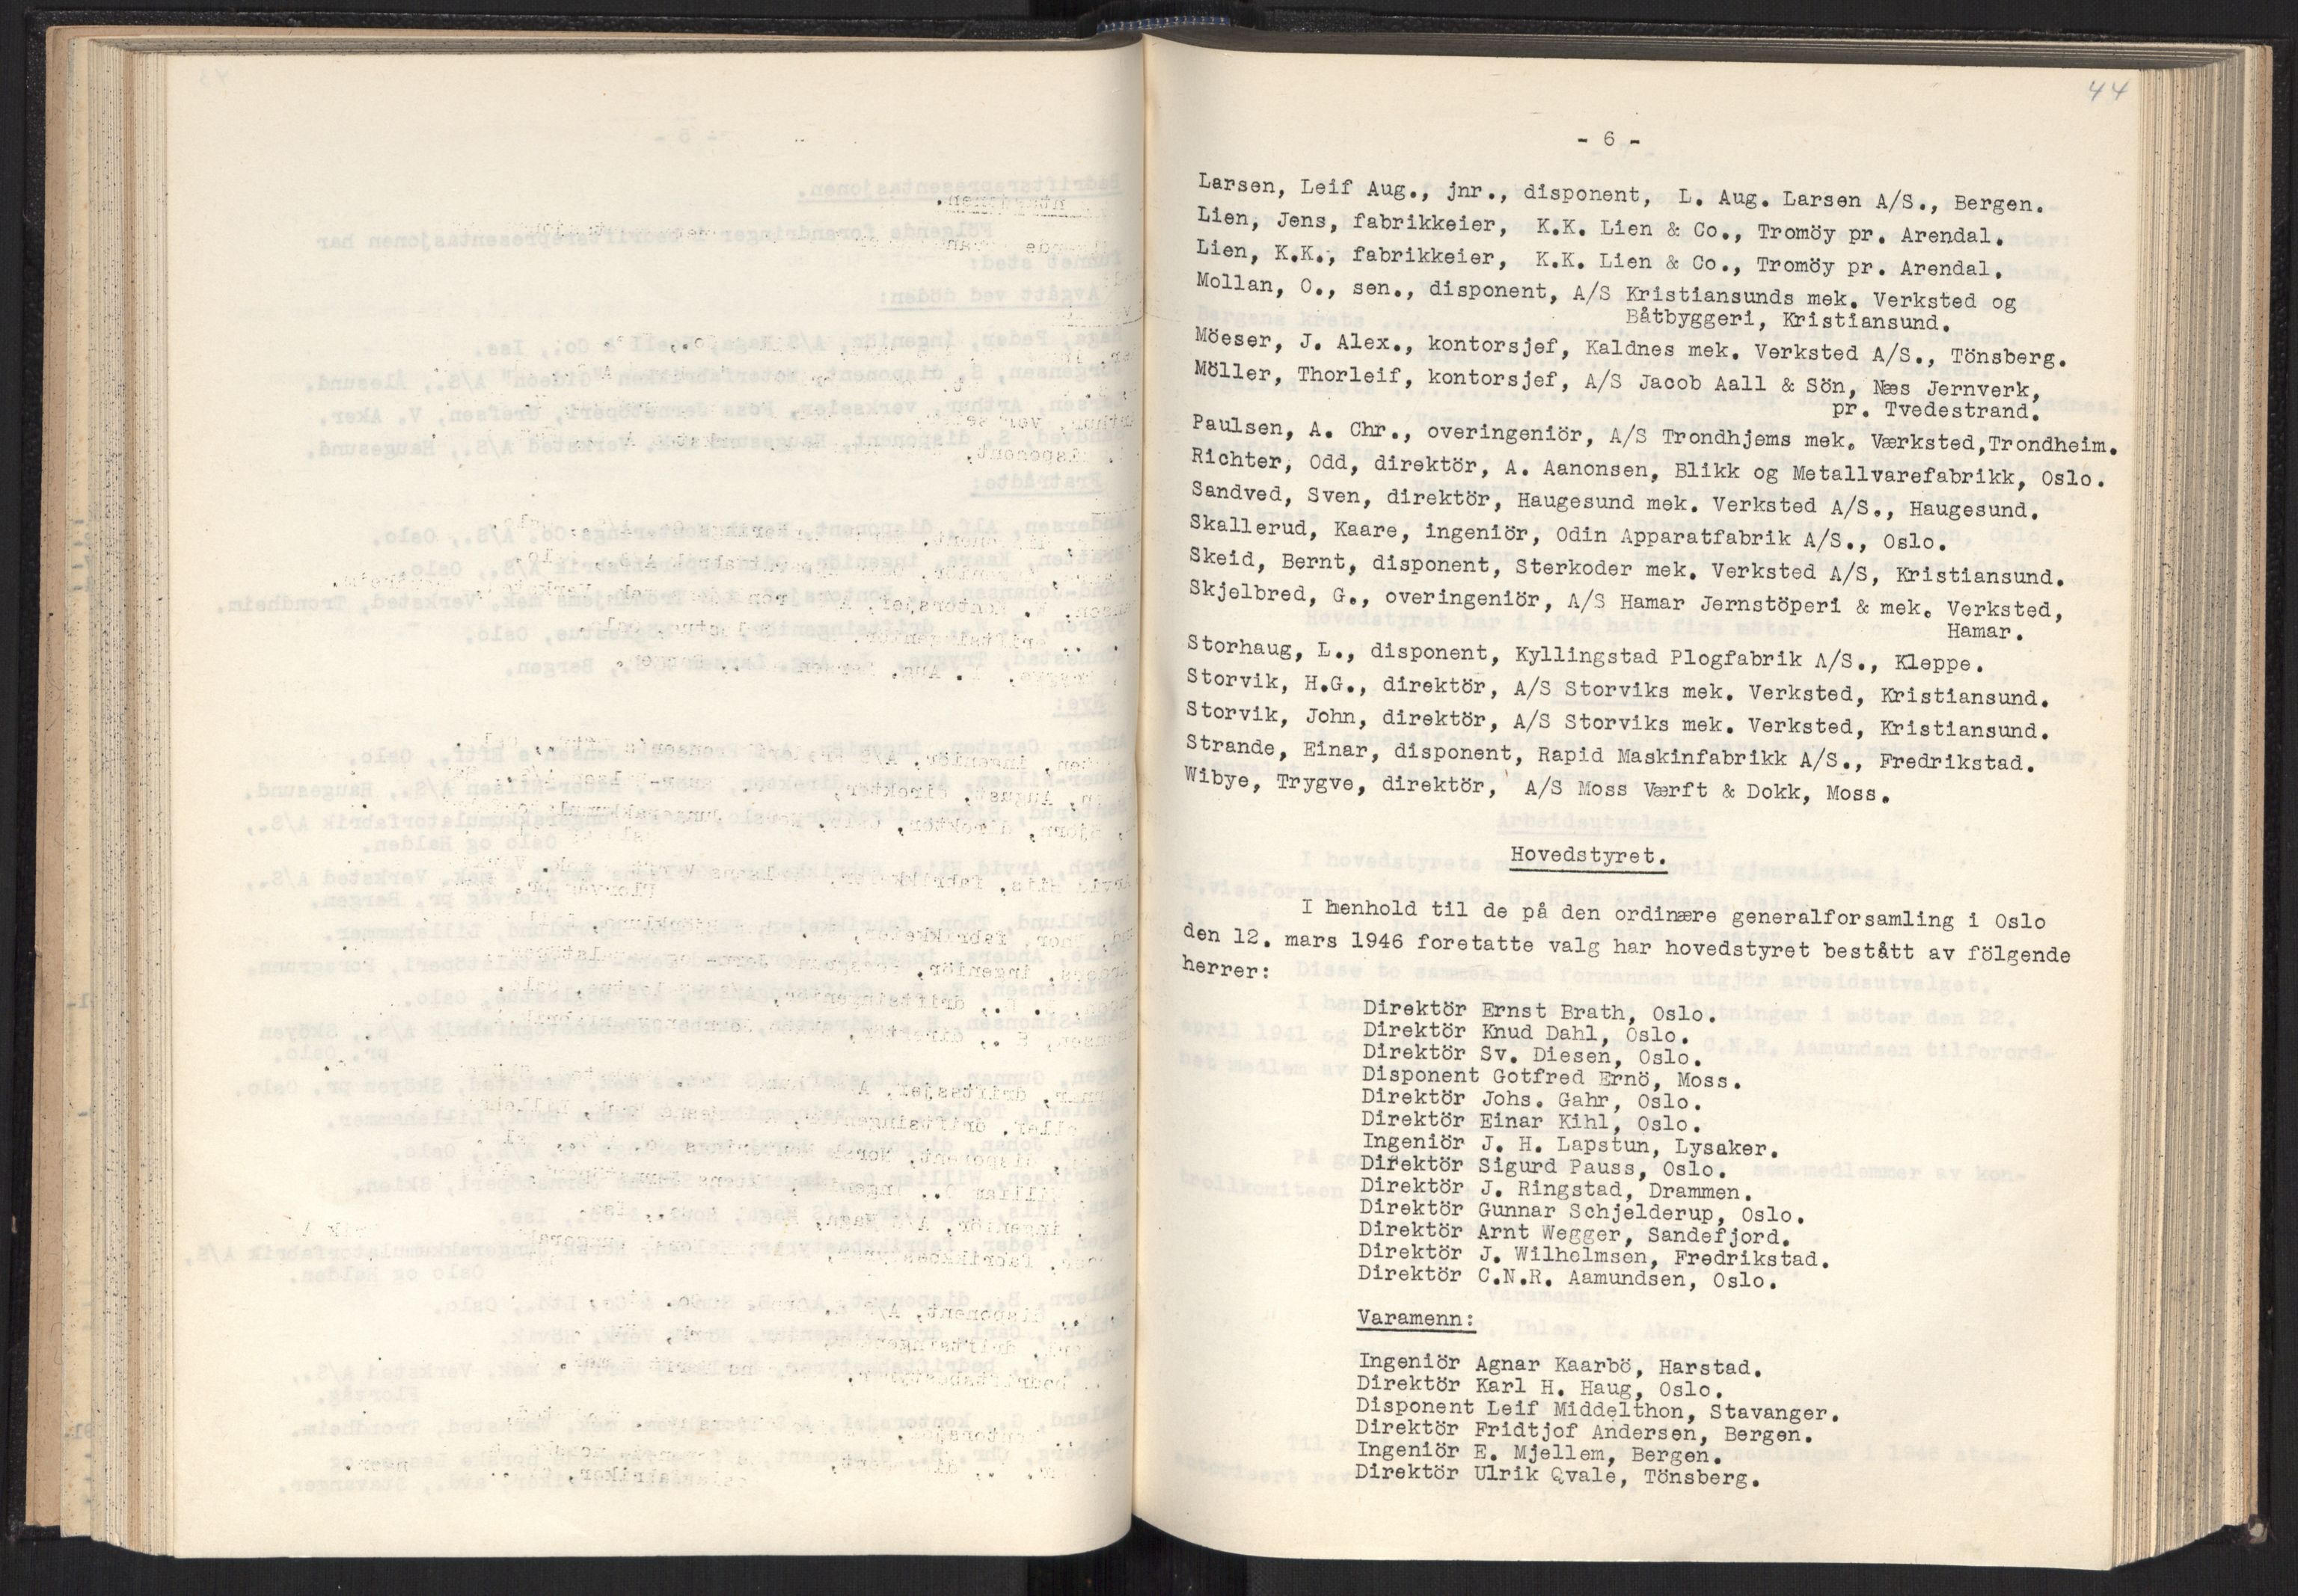 44
- 6 -
Larsen, Leif Aug., jnr., disponent, L. Aug. Larsen A/S., Bergen.
Lien, Jens, fabrikkeier, K.K. Lien & Co., Tromöy pr. Arendal.
Lien, K.K., fabrikkeier, K.K. Lien & Co., Tromöy pr. Arendal.
Mollan, O., sen., disponent, A/S Kristiansunds mek. Verksted og
Båtbyggeri, Kristiansund.
Möeser, J. Alex., kontorsjef, Kaldnes mek. Verksted A/S., Tönsberg.
Möller, Thorleif, kontorsjef, A/S Jacob Aall & Sön, Næs Jernverk,
pr. Tvedestrand.
Paulsen, A. Chr., overingeniör, A/S Trondhjems mek. Værksted,Trondheim.
Richter, Odd, direktör, A. Aanonsen, Blikk og Metallvarefabrikk, Oslo.
Sandved, Sven, direktör, Haugesund mek. Verksted A/S., Haugesund.
Skallerud, Kaare, ingeniör, Odin Apparatfabrik A/S., Oslo.
Skeid, Bernt, disponent, Sterkoder mek. Verksted A/S, Kristiansund.
Skjelbred, G., overingeniör, A/S Hamar Jernstöperi & mek. Verksted,
Hamar.
Storhaug, L., disponent, Kyllingstad Plogfabrik A/S., Kleppe.
Storvik, H.G., direktör, A/S Storviks mek. Verksted, Kristiansund.
Storvik, John, direktör, A/S Storviks mek. Verksted, Kristiansund.
Strande, Einar, disponent, Rapid Maskinfabrikk A/S., Fredrikstad.
Wibye, Trygve, direktör, A/S Moss Værft & Dokk, Moss.
Hovedstyret.
I henhold til de på den ordinære generalforsamling i Oslo
den 12. mars 1946 foretatte valg har hovedstyret bestått av fölgende
herrer:
Direktör Ernst Brath, Oslo.
Direktör Knud Dahl, Oslo.
Direktör Sv. Diesen, Oslo.
Disponent Gotfred Ernö, Moss.
Direktör Johs. Gahr, Oslo.
Direktör Einar Kihl, Oslo.
Ingeniör J. H. Lapstun, Lysaker.
Direktör Sigurd Pauss, Oslo.
Direktör J. Ringstad, Drammen.
Direktör Gunnar Schjelderup, Oslo.
Direktör Arnt Wegger, Sandefjord.
Direktör J. Wilhelmsen, Fredrikstad.
Direktör C.N.R. Aamundsen, Oslo.
Varamenn:
Ingeniör Agnar Kaarbö, Harstad.
Direktör Karl H. Haug, Oslo.
Disponent Leif Middelthon, Stavanger.
Direktör Fridtjof Andersen, Bergen.
Ingeniör E. Mjellem, Bergen.
Direktör Ulrik Qvale, Tönsberg.